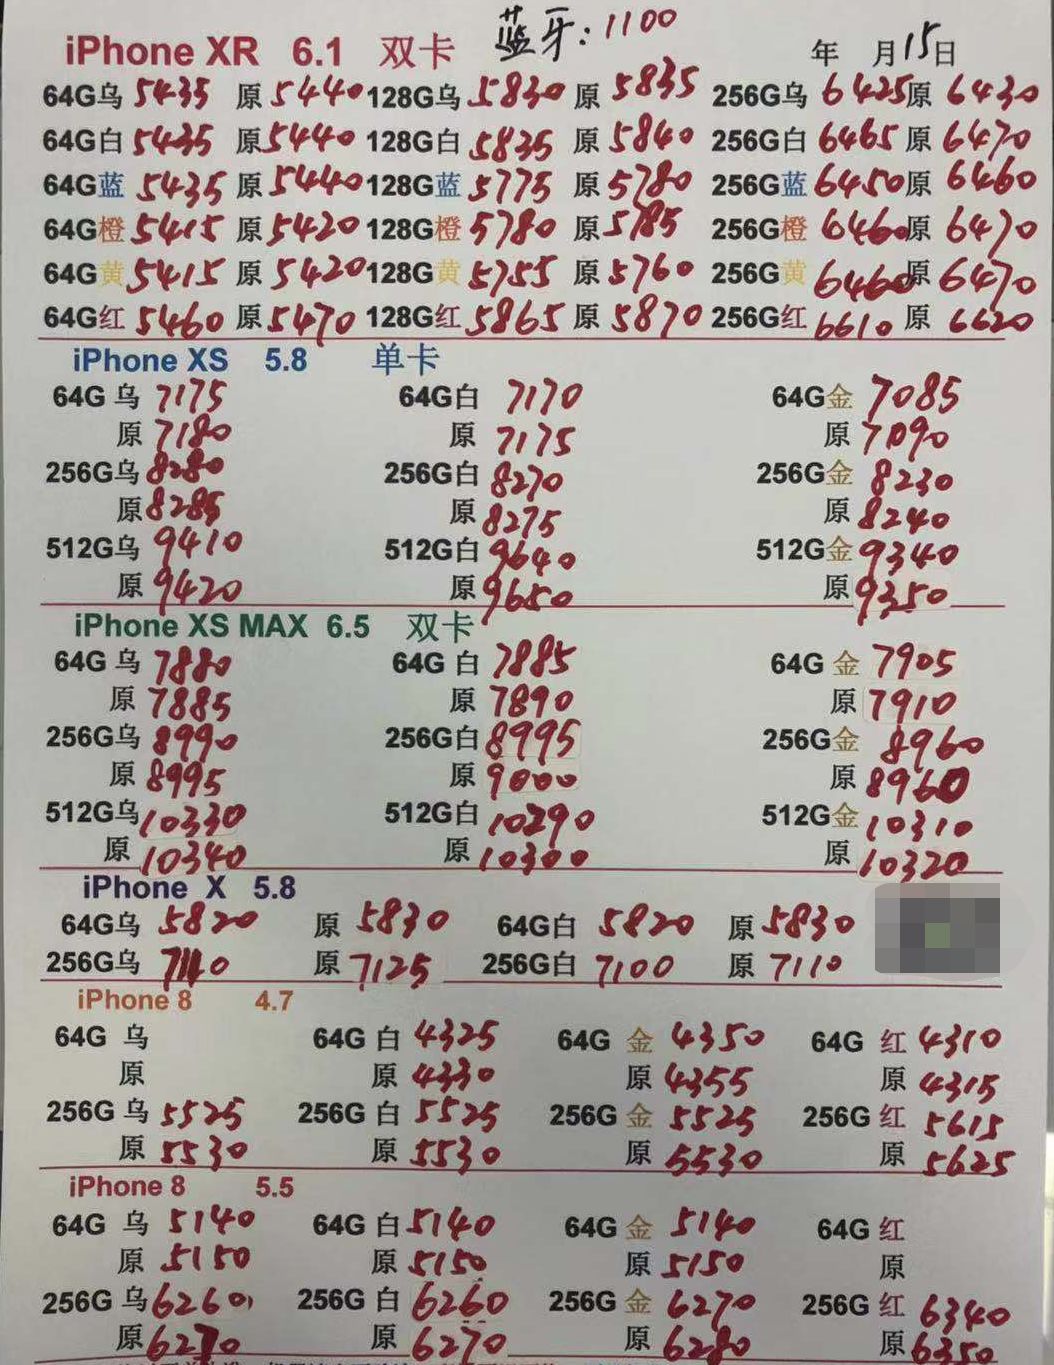 iPhone XR 6.1 双卡 蓝牙:1100 年 月15日
64G乌 5435 原 5440 128G乌 5830 原 5835 256G乌 6425 原 6430
64G白 5435 原 5440 128G白 5835 原 5840 256G白 6465 原 6470
64G蓝 5435 原 5440 128G蓝 5775 原 5780 256G蓝 6450 原 6460
64G橙 5415 原 5420 128G橙 5780 原 5785 256G橙 6460 原 6470
64G黄 5415 原 5420 128G黄 5755 原 5760 256G黄 6460 原 6470
64G红 5460 原 5470 128G红 5865 原 5870 256G红 6610 原 6620
iPhone XS 5.8 单卡
64G 乌 7175 64G白 7170 64G金 7085
原 7180 原 7175 原 7090
256G乌 8280 256G白 8270 256G金 8230
原 8285 原 8275 原 8240
512G乌 9410 512G白 9640 512G金 9340
原 9420 原 9650 原 9350
iPhone XS MAX 6.5 双卡
64G 乌 7880 64G 白 7885 64G 金 7905
原 7885 原 7890 原 7910
256G乌 8990 256G白 8995 256G金 8960
原 8995 原 9000 原 8960
512G乌 10330 512G白 10290 512G金 10310
原 10340 原 10300 原 10320
iPhone X 5.8
64G乌 5820 原 5830 64G白 5820 原 5830
256G乌 原 7125 256G白 7100 原 7110
iPhone 8 4.7
64G 乌 64G 白 4325 64G 金 4350 64G 红 4310
原 原 4330 原 4355 原 4315
256G 乌 5525 256G 白 5525 256G 金 5525 256G 红 5615
原 5530 原 5530 原 5530 原 5625
iPhone 8 5.5
64G 乌 5140 64G 白 5140 64G 金 5140 64G 红
原 5150 原 5150 原 5150 原
256G 乌 6260 256G 白 6260 256G 金 6270 256G 红 6340
原 6270 原 6270 原 6280 原 6350